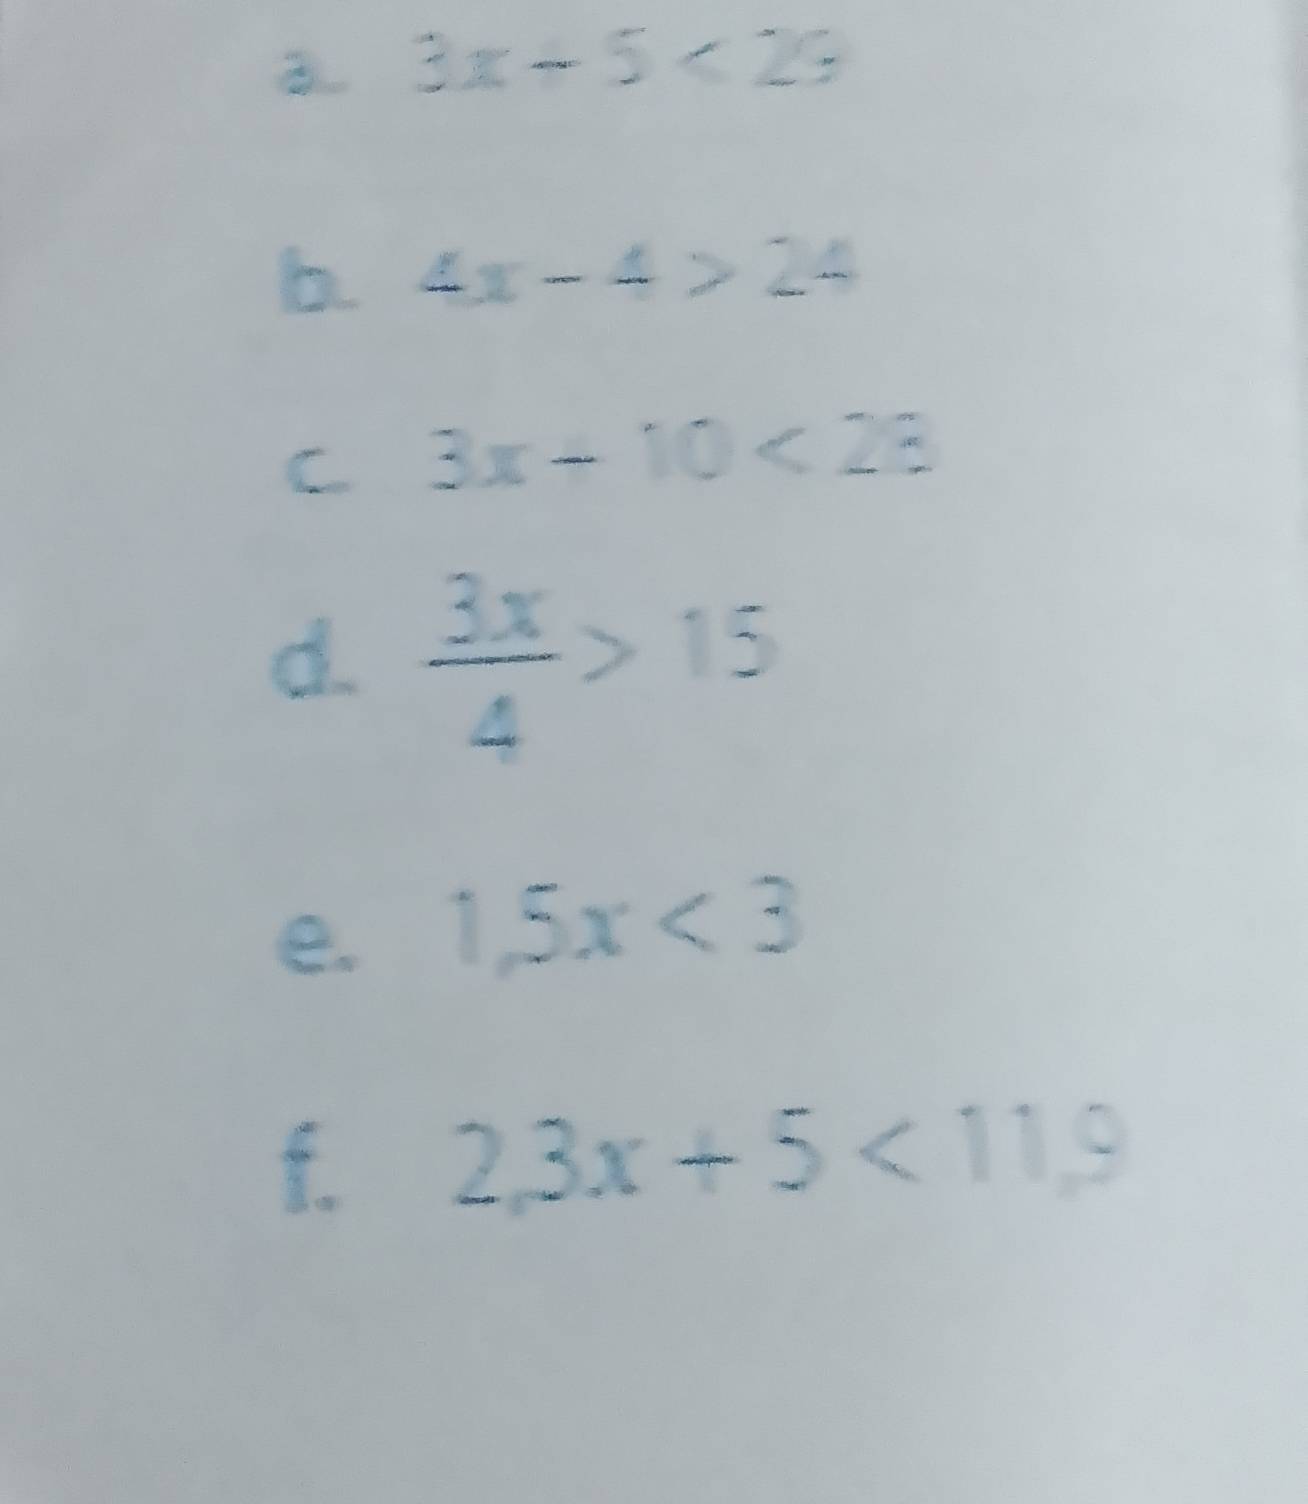 a. 3x + 5 < 29
b. 4x - 4 > 24
c. 3x + 10 < 28
d. \frac{3x}{4} > 15
e. 1,5x < 3
f. 2,3x + 5 < 11,9